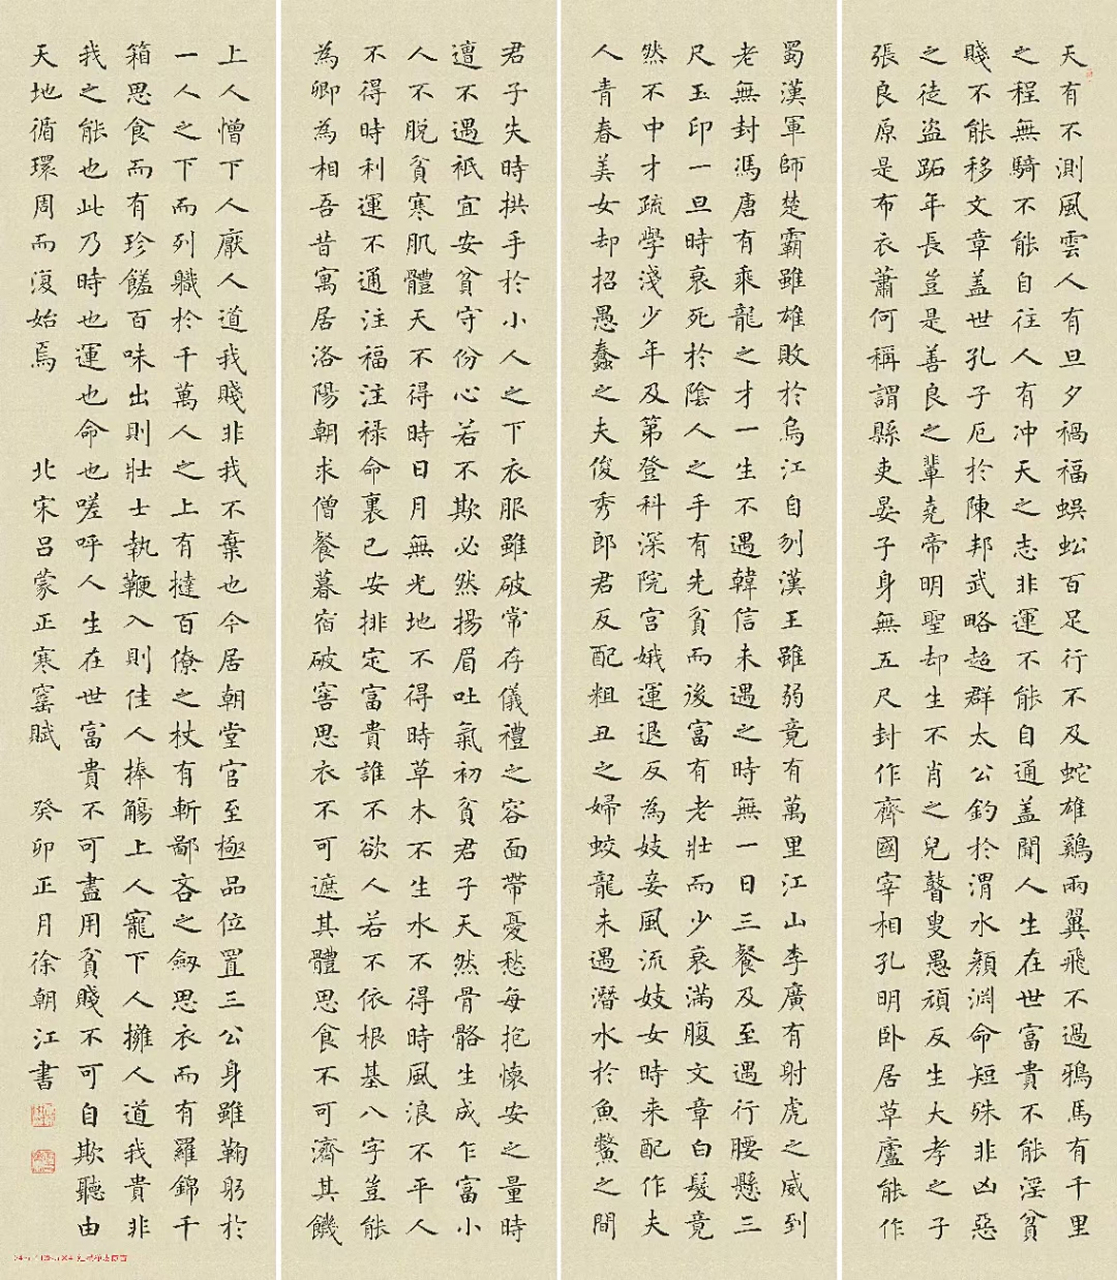 天有不測風雲人有旦夕禍福蜈蚣百足行不及蛇雄鷄兩翼飛不過鴉馬有千里
之程無騎不能自往人有冲天之志非運不能自通盖聞人生在世富貴不能淫貧
賤不能移文章盖世孔子厄於陳邦武略超群太公釣於渭水顏淵命短殊非凶惡
之徒盜跖年長豈是善良之輩堯帝明聖却生不肖之兒瞽叟愚頑反生大孝之子
張良原是布衣蕭何稱謂縣吏晏子身無五尺封作齊國宰相孔明卧居草廬能作
蜀漢軍師楚霸雖雄敗於烏江自刎漢王雖弱竟有萬里江山李廣有射虎之威到
老無封馮唐有乘龍之才一生不遇韓信未遇之時無一日三餐及至遇行腰懸三
尺玉印一旦時衰死於陰人之手有先貧而後富有老壯而少衰滿腹文章白髮竟
然不中才疏學淺少年及第登科深院宮娥運退反為妓妾風流妓女時来配作夫
人青春美女却招愚蠢之夫俊秀郎君反配粗丑之婦蛟龍未遇潛水於魚鱉之間
君子失時拱手於小人之下衣服雖破常存儀禮之容面帶憂愁每抱懷安之量時
遭不遇衹宜安貧守份心若不欺必然揚眉吐氣初貧君子天然骨骼生成乍富小
人不脫貧寒肌體天不得時日月無光地不得時草木不生水不得時風浪不平人
不得時利運不通注福注祿命裏已安排定富貴誰不欲人若不依根基八字豈能
為卿為相吾昔寓居洛陽朝求僧餐暮宿破窖思衣不可遮其體思食不可濟其饑
上人憎下人厭人道我賤非我不棄也今居朝堂官至極品位置三公身雖鞠躬於
一人之下而列職於千萬人之上有撻百僚之杖有斬鄙吝之劍思衣而有羅錦千
箱思食而有珍饈百味出則壯士執鞭入則佳人捧觴上人寵下人擁人道我貴非
我之能也此乃時也運也命也嗟呼人生在世富貴不可盡用貧賤不可自欺聽由
天地循環周而復始焉 北宋呂蒙正寒窯賦 癸卯正月徐朝江書